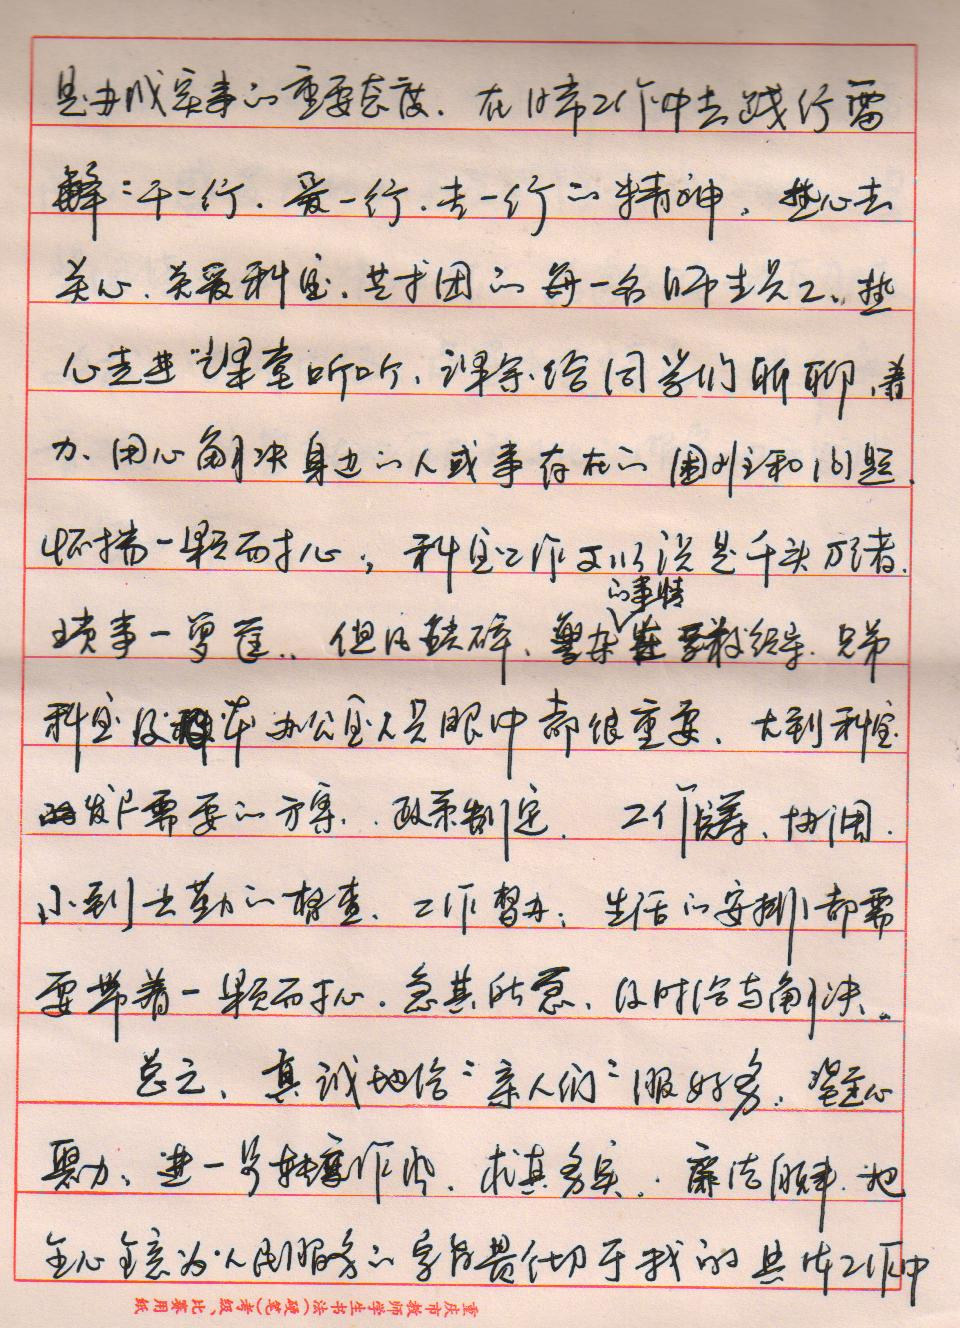 是办成实事的重要态度. 在日常工作中去践行雷
锋"干一行.爱一行.专一行的精神, 热心去
关心、关爱科室、艺术团的每一名师生员工、热
心走进"课堂听听、课余给同学们聊聊,着
力、用心解决身边的人或事存在的困难和问题.
怀揣一颗耐心, 科室工作可以说是千头万绪.
的事情
琐事一箩筐., 但凡琐碎、繁杂在学校领导.兄弟
科室及本办公室人员眼中都很重要、大到科室
的发展需要的方案、政策制定. 工作统筹、协调.
小到出勤的检查、工作督办, 生活的安排都需
要带着一颗耐心.急其所急、及时给与解决。
总之、真诚地给"亲人们"服好务, 凝心
聚力、进一步转变作风、求真务实, 廉洁自律.把
全心全意为人民服务的宗旨贯彻于我的具体工作中
重庆市教师学生书法(硬笔)考级、比赛用纸